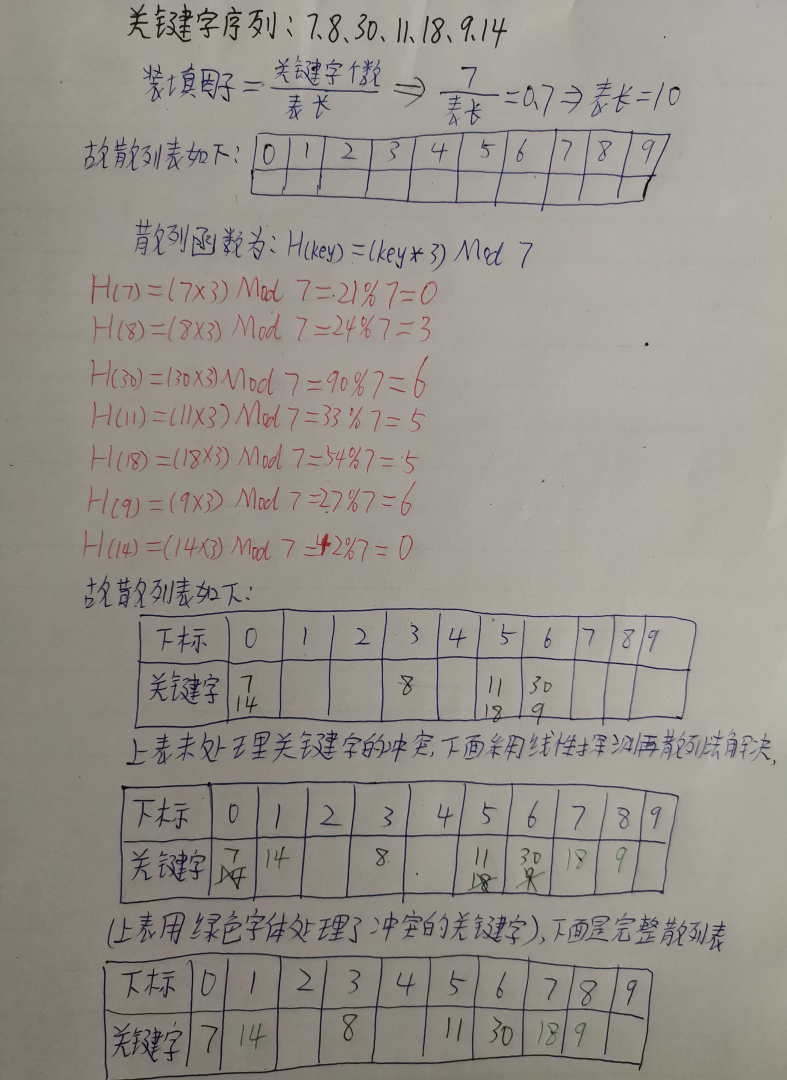 关键字序列:7、8、30、11、18、9、14
装填因子=关键字个数/表长⇒7/表长=0.7⇒表长=10
故散列表如下: 0 1 2 3 4 5 6 7 8 9
散列函数为:H(key)=(key*3) Mod 7
H(7)=(7×3) Mod 7=21%7=0
H(8)=(8×3) Mod 7=24%7=3
H(30)=(30×3) Mod 7=90%7=6
H(11)=(11×3) Mod 7=33%7=5
H(18)=(18×3) Mod 7=54%7=5
H(9)=(9×3) Mod 7=27%7=6
H(14)=(14×3) Mod 7=42%7=0
故散列表如下:
下标 0 1 2 3 4 5 6 7 8 9
关键字 7 8 11 30
14 18 9
上表未处理关键字的冲突,下面采用线性探测再散列法解决,
下标 0 1 2 3 4 5 6 7 8 9
关键字 7 14 8 11 30 18 9
14 18 9
(上表用绿色字体处理了冲突的关键字),下面是完整散列表
下标 0 1 2 3 4 5 6 7 8 9
关键字 7 14 8 11 30 18 9